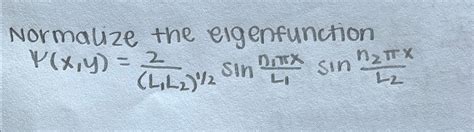 Normalize the eigenfunction
Ψ(x,y) = 2/(L₁L₂)^1/2 sin n₁πx/L₁ sin n₂πx/L₂